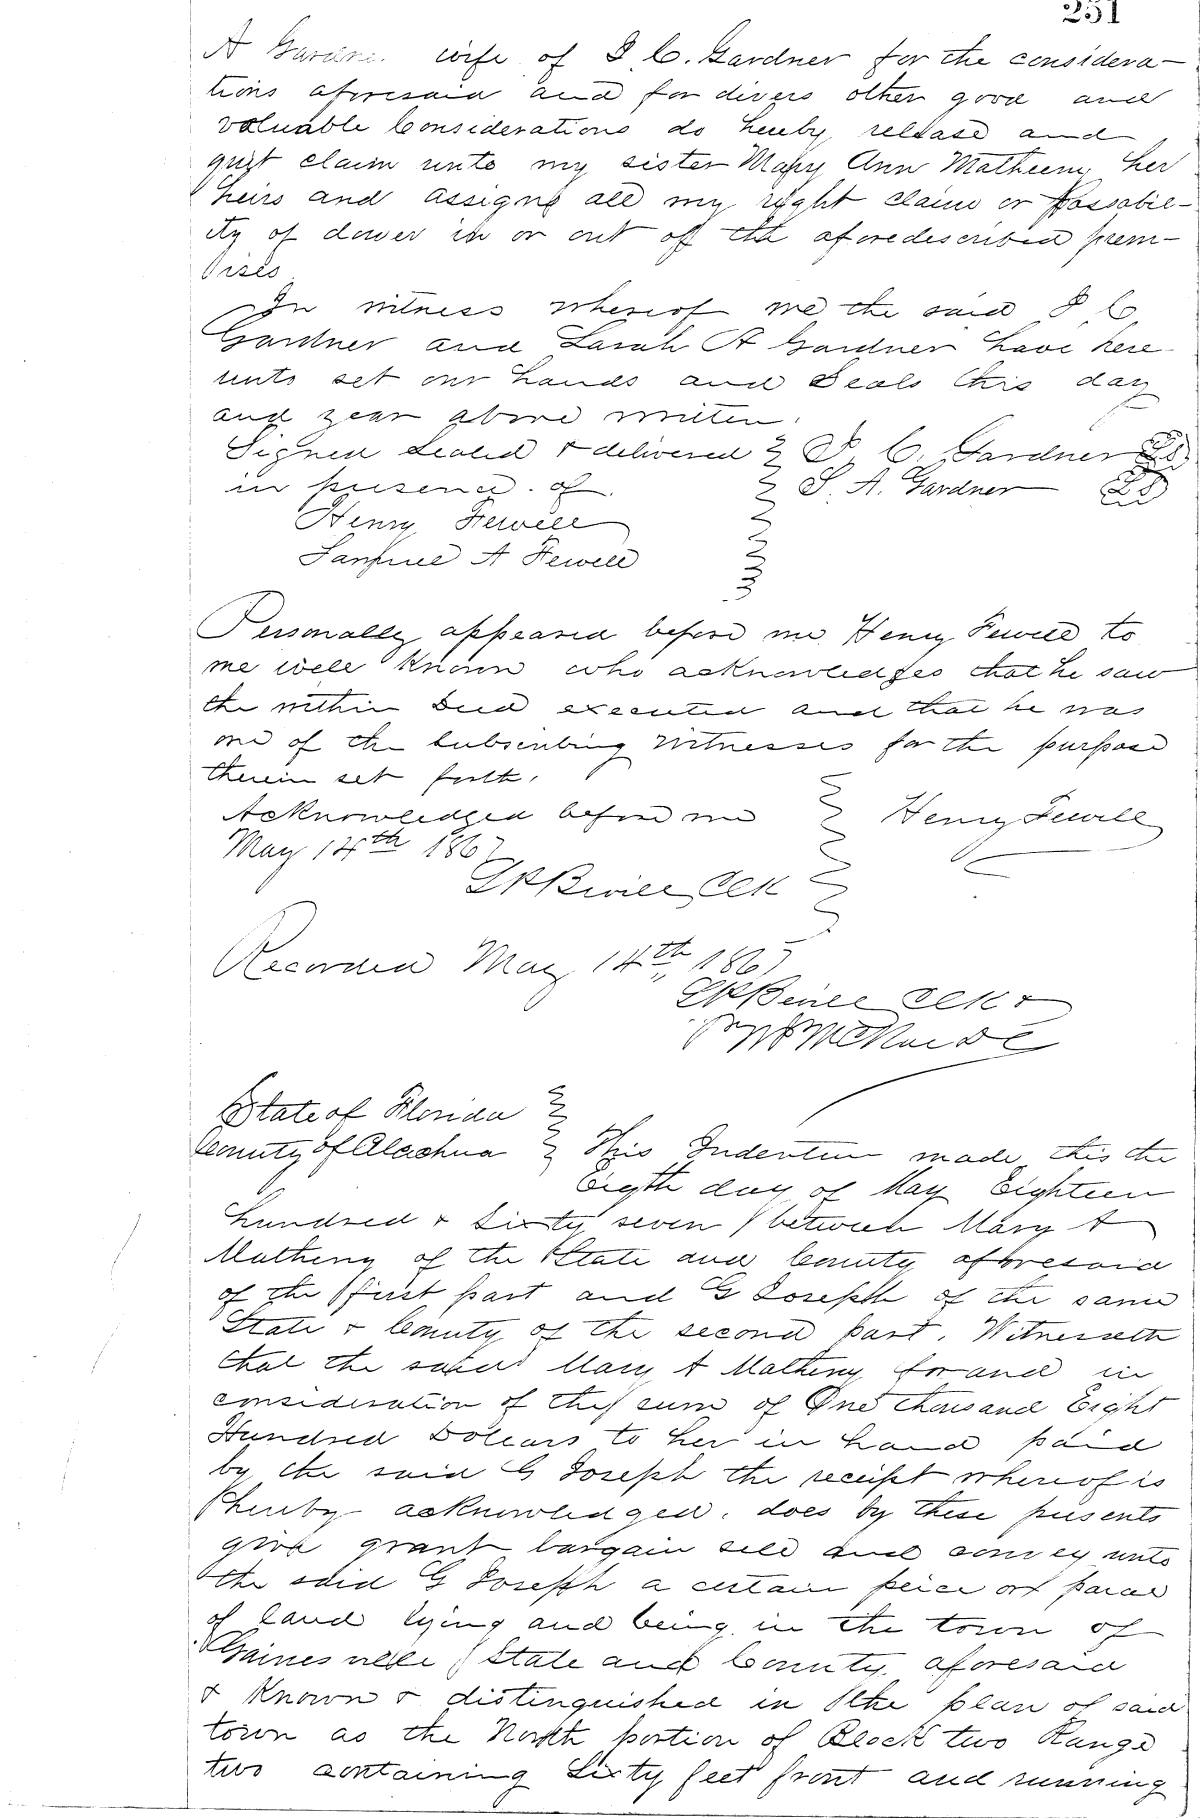 251
A Gardner wife of I. C. Gardner for the considera-
tions aforesaid and for divers other good and
valuable Considerations do hereby release and
quit claim unto my sister Mary Ann Matheny her
heirs and assigns all my right claim or possobil-
ity of dower in or out of the aforedescribed prem-
ises
In witness whereof we the said I C
Gardner and Sarah A Gardner have here
unto set our hands and Seals this day
and year above written.
Signed Sealed & delivered I. C. Gardner LS
in presence of S. A. Gardner LS
Henry Fewell
Samuel A Fewell
Personally appeared before me Henry Fewell to
me well known who acknowledges that he saw
the within Deed executed and that he was
one of the Subscribing witnesses for the purpose
therein set forth.
Acknowledged before me Henry Fewell
May 14th 1867
Clk
Recorded May 14th 1867
Clk &
State of Florida
County of Alachua This Indenture made this the
Eigth day of May Eighteen
hundred & Sixty seven between Mary A
Matheny of the State and County aforesaid
of the first part and G Joseph of the same
State & County of the second part. Witnesseth
that the said Mary A Matheny for and in
consideration of the sum of One thousand Eight
Hundred Dollars to her in hand paid
by the said G Joseph the receipt whereof is
hereby acknowledged. does by these presents
give grant bargain sell and convey unto
the said G Joseph a certain peice or parcel
of land lying and being in the town of
Gainesville State and County aforesaid
& Known & distinguished in the plan of said
town as the North portion of Block two Range
two containing Sixty feet front and running